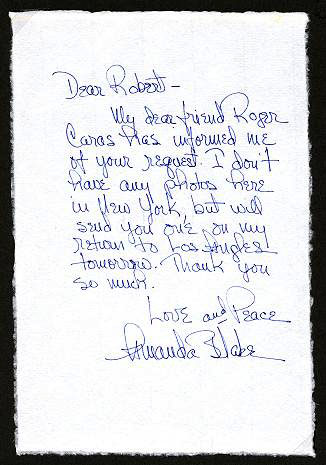 Dear Robert -
My dear friend Roger
Caras has informed me
of your request. I don't
have any photos here
in New York, but will
send you one on my
return to Los Angles
tomorrow. Thank you
so much.
Love and Peace
Amanda Blake